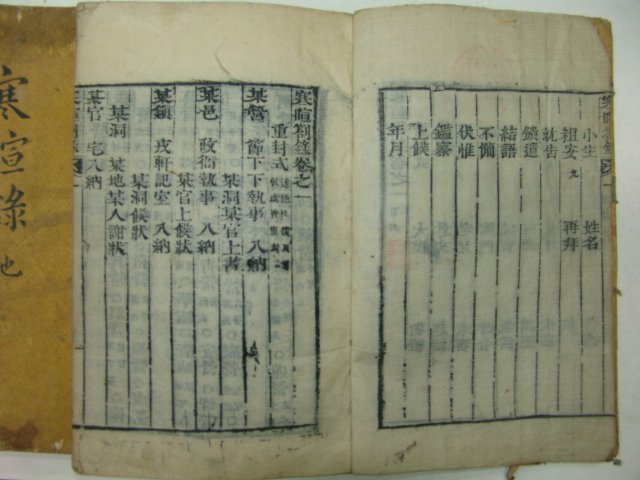 小生 姓名
粗安 九 再拜
就告
鎖遺
結語
不備
伏惟
鑑察
上候
年月
寒暄箚錄卷之一
重封式
某營 節下下執事 入納
某洞某官上書
某邑 政衙執事 入納
某官上候狀
某鎮 戎軒記室 入納
某洞候狀
某洞 某地某人謝狀
某官 宅入納
寒宣錄 也